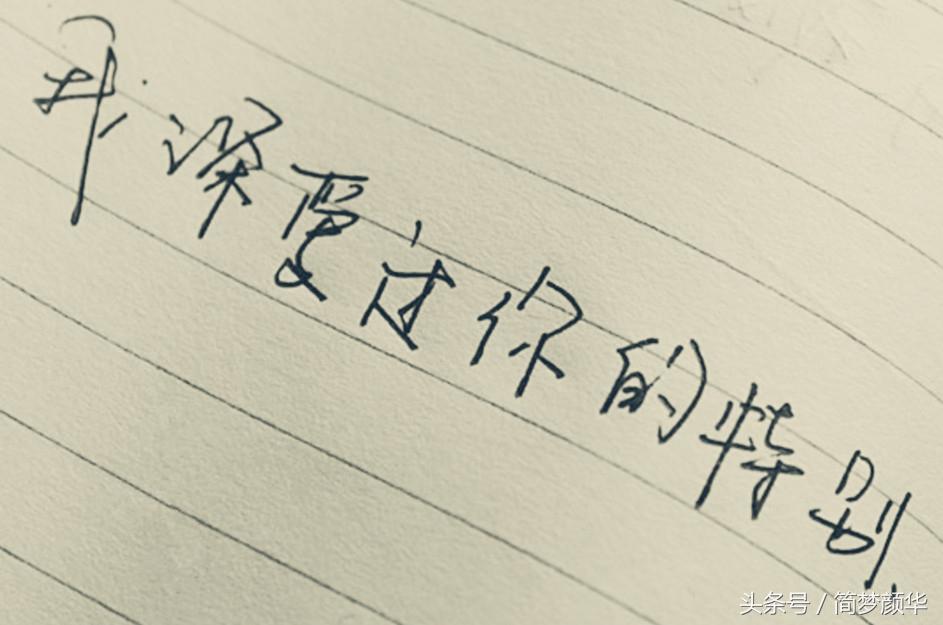 我深爱过你的特别
头条号 / 简梦颜华